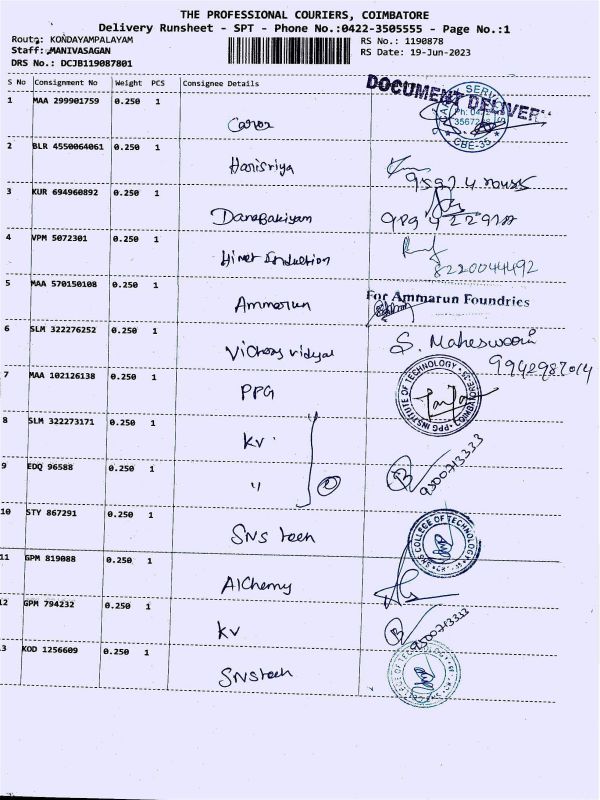 THE PROFESSIONAL COURIERS, COIMBATORE
Delivery Runsheet - SPT - Phone No.:0422-3505555 - Page No.:1
Route: KONDAYAMPALAYAM
RS No.: 1190878
Staff: MANIVASAGAN
RS Date: 19-Jun-2023
DRS No.: DCJB119087801
S No Consignment No Weight PCS Consignee Details
DOCUMENT DELIVER
1 MAA 299901759 0.250 1
CBE-35
2 BLR 4550064061 0.250 1 Harisriya
3 KUR 694960892 0.250 1 Danabakiyam
4 VPM 5072301 0.250 1
8220044492
5 MAA 570150108 0.250 1 Ammarun
For Ammarun Foundries
6 SLM 322276252 0.250 1
S. Maheswari
9942987014
7 MAA 102126138 0.250 1 PPG
PPG INSTITUTE OF TECHNOLOGY COIMBATORE-35
8 SLM 322273171 0.250 1 KV
9500713333
9 EDQ 96588 0.250 1 "
2
10 STY 867291 0.250 1 SNS tech
SNS COLLEGE OF TECHNOLOGY
11 GPM 819088 0.250 1 Alchemy
12 GPM 794232 0.250 1 KV
9500713333
3 KOD 1256609 0.250 1 SNS tech